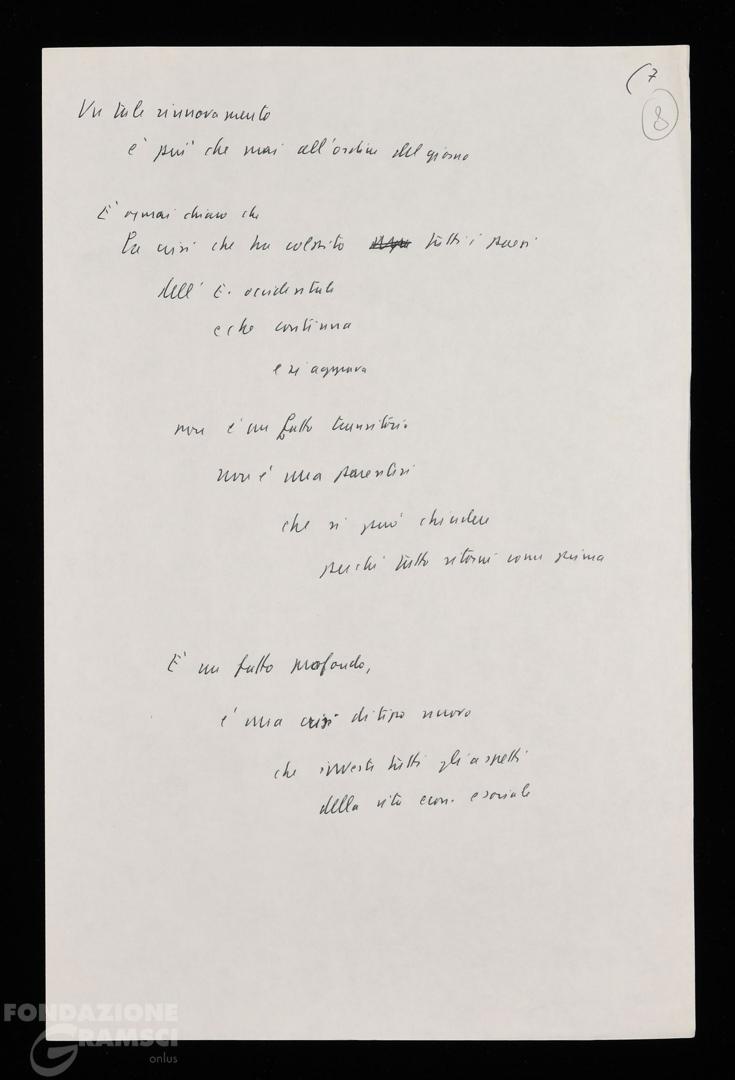 (7
8
Un tale rinnovamento
è più che mai all'ordine del giorno
È ormai chiaro che
La crisi che ha colpito tutti i paesi
dell' E. occidentale
e che continua
e si aggrava
non è un fatto transitorio
non è una parentesi
che si può chiudere
perché tutto ritorni come prima
È un fatto profondo,
è una crisi di tipo nuovo
che investe tutti gli aspetti
della vita econ. e sociale
FONDAZIONE
GRAMSCI
onlus